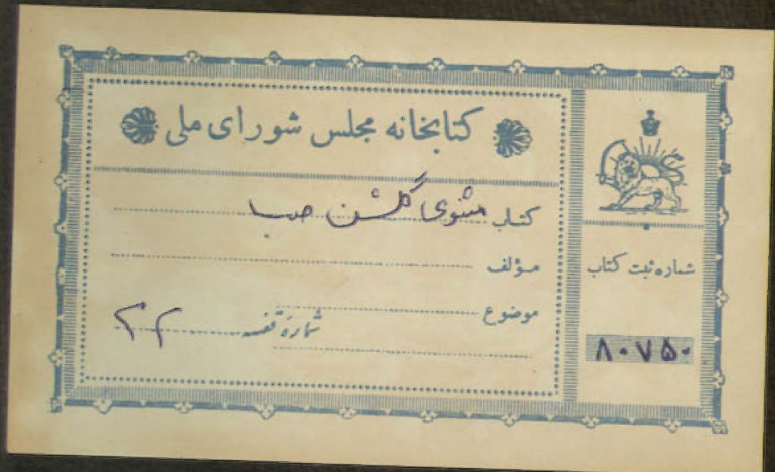 کتابخانه مجلس شورای ملی
کتاب مثنوی گلشن صبا
مؤلف
موضوع
شماره قفسه
شماره ثبت کتاب
۸۰۷۵۰